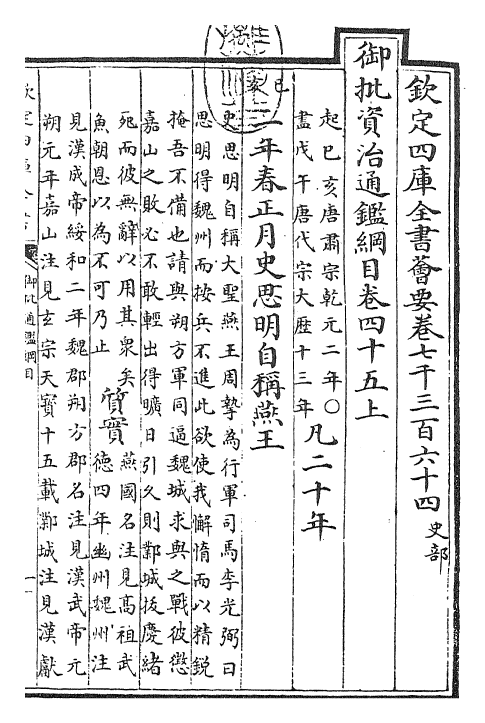 欽定四庫全書薈要卷七千三百六十四 史部
御批資治通鑑綱目卷四十五上
起己亥唐肅宗乾元二年〇
盡戊午唐代宗大歴十三年
凡二十年
己亥
二年春正月史思明自稱燕王
史思明自稱大聖燕王周摯為行軍司馬李光弼曰
思明得魏州而按兵不進此欲使我懈惰而以精鋭
掩吾不備也請與朔方軍同逼魏城求與之戰彼懲
嘉山之敗必不敢輕出得曠日引久則鄴城拔慶緒
死而彼無辭以用其衆矣
魚朝恩以為不可乃止
質實
燕國名注見髙祖武
德四年幽州魏州注
見漢成帝綏和二年魏郡朔方郡名注見漢武帝元
朔元年嘉山注見玄宗天寶十五載鄴城注見漢獻
欽定四庫全書
御批通鑑綱目
一